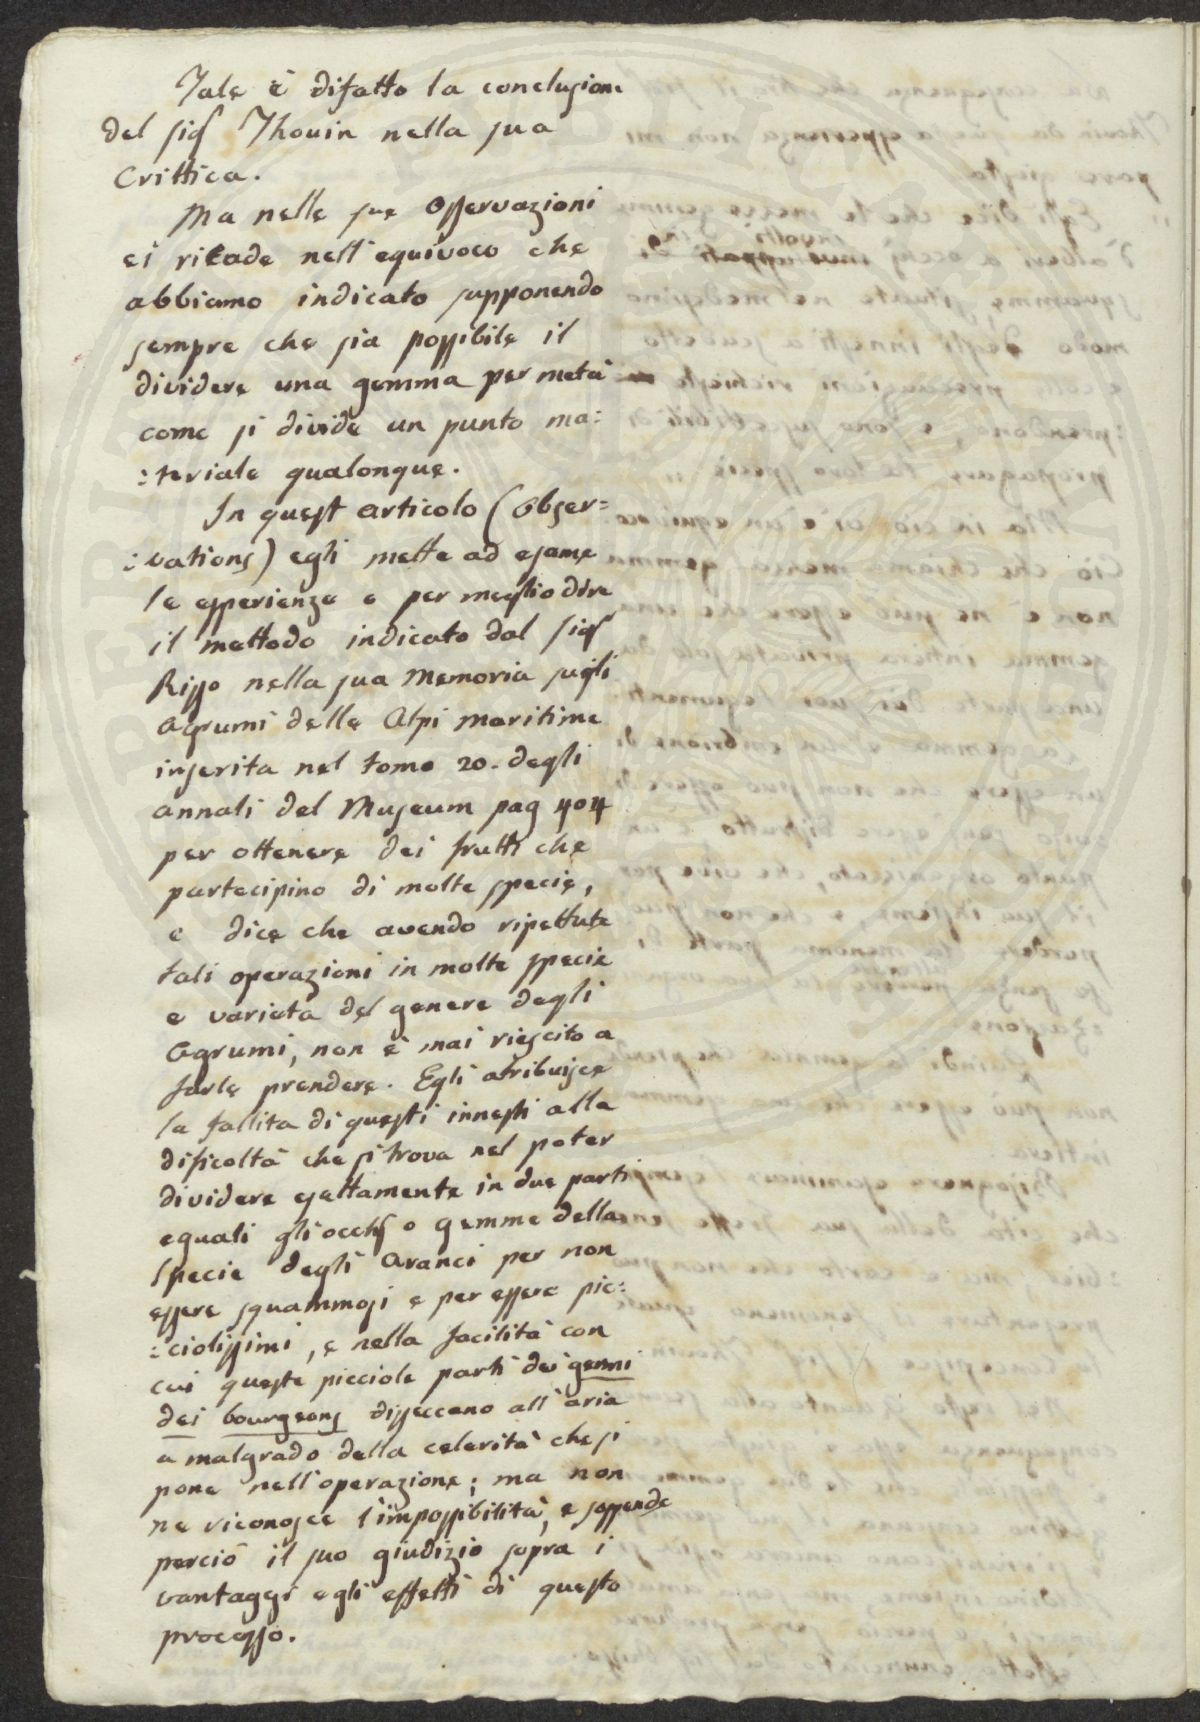 Tale è difatto la conclusione
del sig.r Thouin nella sua
Crittica.
Ma nelle sue Osservazioni
ei ricade nell'equivoco che
abbiamo indicato supponendo
sempre che sia possibile il
dividere una gemma per metà
come si divide un punto ma:
:teriale qualonque.
In quest articolo (Obser=
:vations) egli mette ad esame
le esperienze e per meglio dire
il mettodo indicato dal sig.r
Risso nella sua Memoria sugli
Agrumi delle Alpi maritime
inserita nel tomo 20. degli
annali del Museum pag 404
per ottenere dei frutti che
partecipino di molte specie,
e dice che avendo ripettute
tali operazioni in molte specie
e varieta del genere degli
Agrumi, non è mai riescito a
farle prendere. Egli atribuisce
la fallita di questi innesti alla
dificoltà che si trova nel poter
dividere esattamente in due parti
eguali gli occhj o gemme della
specie degli Aranci per non
essere squammosi e per essere pic:
:ciolissimi, e nella facilità con
cui queste picciole parti dei gemmi
dei bourgeons disseccano all'aria
a malgrado della celerità che si
pone nell'operazione; ma non
ne riconosce l'impossibilità, e sospende
perciò il suo giudizio sopra i
vantaggi e gli effetti di questo
processo.